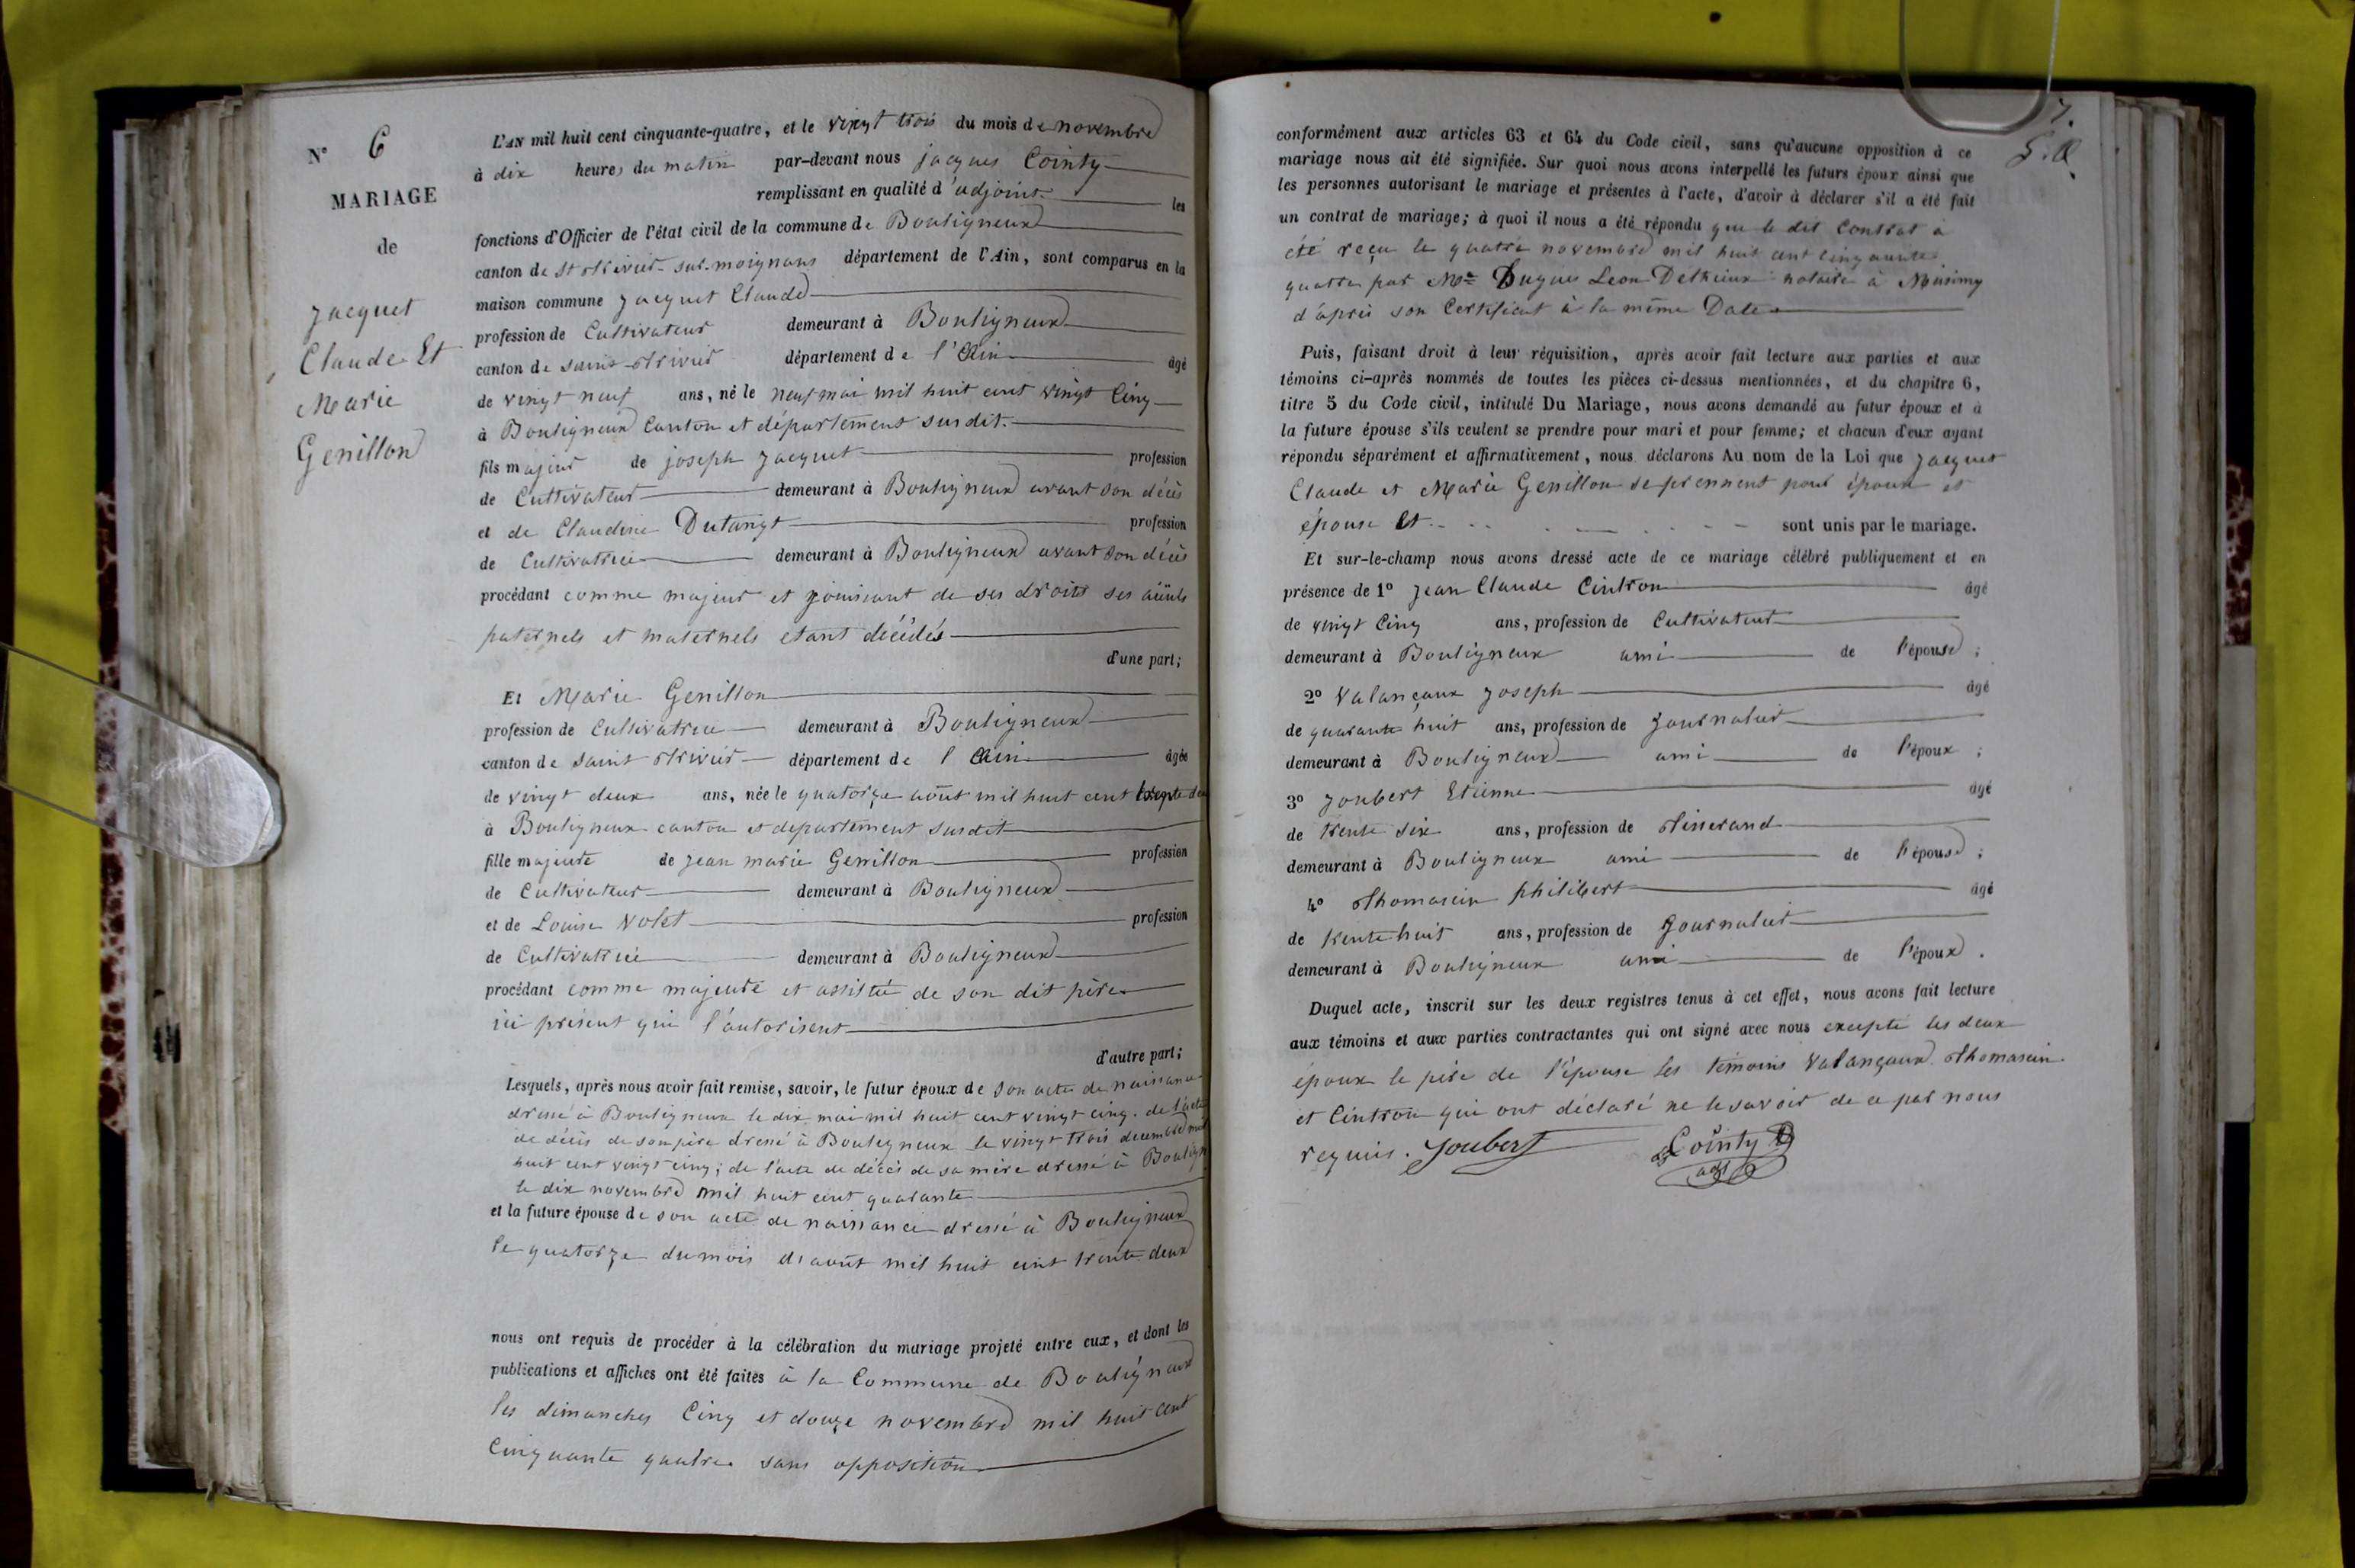 N° 6
MARIAGE
de
Jacquet
Claude Et
Marie
Genillon
L'AN mil huit cent cinquante-quatre, et le vingt trois du mois de novembre
à dix heures du matin par-devant nous jacques Cointy
remplissant en qualité d'adjoint les
fonctions d'Officier de l'état civil de la commune de Bouligneux
canton de St Trivier-sur-moignans département de l'Ain, sont comparus en la
maison commune Jacquet Claude
profession de Cultivateur demeurant à Bouligneux
canton de saint-Trivier département de l'Ain âgé
de vingt neuf ans, né le neuf mai mil huit cent vingt Cinq
à Bouligneux Canton et département susdit.
fils majeur de joseph Jacquet profession
de Cultivateur demeurant à Bouligneux avant son décès
et de Claudine Dutangt profession
de Cultivatrice demeurant à Bouligneux avant son décès
procédant comme majeur et jouissant de ses droits ses aïeuls
paternels et maternels etant décédés
d'une part;
Et Marie Genillon
profession de Cultivatrice demeurant à Bouligneux
canton de saint Trivier département de l'Ain âgée
de vingt deux ans, née le quatorze août mil huit cent
à Bouligneux canton et département susdit
fille majeure de Jean marie Genillon profession
de Cultivateur demeurant à Bouligneux
et de Louise Volet profession
de Cultivatrice demeurant à Bouligneux
procédant comme majeure et assistée de son dit père
ici présent qui l'autorisent
d'autre part;
Lesquels, après nous avoir fait remise, savoir, le futur époux de son acte de naissance
dressé à Bouligneux le dix mai mil huit cent vingt cinq. de l'acte
de décès de son père dressé à Bouligneux le vingt trois decembre mil
huit cent vingt cinq; de l'acte de décès de sa mère dressé à Boulign
le dix novembre mil huit cent quarante
et la future épouse de son acte de naissance dressé à Bouligneux
le quatorze du mois d'août mil huit cent trente deux
nous ont requis de procéder à la célébration du mariage projeté entre eux, et dont les
publications et affiches ont été faites à la Commune de Bouligneux
les dimanches Cinq et douze novembre mil huit cent
Cinquante quatre sans opposition
7.
conformément aux articles 63 et 64 du Code civil, sans qu'aucune opposition à ce
mariage nous ait été signifiée. Sur quoi nous avons interpellé les futurs époux ainsi que
les personnes autorisant le mariage et présentes à l'acte, d'avoir à déclarer s'il a été fait
un contrat de mariage; à quoi il nous a été répondu que le dit Contrat a
été reçu le quatre novembre mil huit cent cinquante
quatre par Me Dugues Leon Dethieux notaire à Misérieux
d'après son Certificat à la même Date
Puis, faisant droit à leur réquisition, après avoir fait lecture aux parties et aux
témoins ci-après nommés de toutes les pièces ci-dessus mentionnées, et du chapitre 6,
titre 5 du Code civil, intitulé Du Mariage, nous avons demandé au futur époux et à
la future épouse s'ils veulent se prendre pour mari et pour femme; et chacun d'eux ayant
répondu séparément et affirmativement, nous déclarons Au nom de la Loi que Jacquet
Claude et Marie Genillon se prennent pour époux et
épouse Et sont unis par le mariage.
Et sur-le-champ nous avons dressé acte de ce mariage célébré publiquement et en
présence de 1° Jean Claude Cintron âgé
de vingt Cinq ans, profession de Cultivateur
demeurant à Bouligneux ami de l'épouse ;
2° Valançaux Joseph âgé
de quarante huit ans, profession de Journalier
demeurant à Bouligneux ami de l'époux ;
3° Joubert Etienne âgé
de trente six ans, profession de Tisserand
demeurant à Bouligneux ami de l'épouse ;
4° Thomasein philibert âgé
de trente huit ans, profession de Journalier
demeurant à Bouligneux ami de l'époux .
Duquel acte, inscrit sur les deux registres tenus à cet effet, nous avons fait lecture
aux témoins et aux parties contractantes qui ont signé avec nous excepté les deux
époux le père de l'épouse les témoins Valançaux Thomasein
et Cintron qui ont déclaré ne le savoir de ce par nous
requis. Joubert Cointy
adj